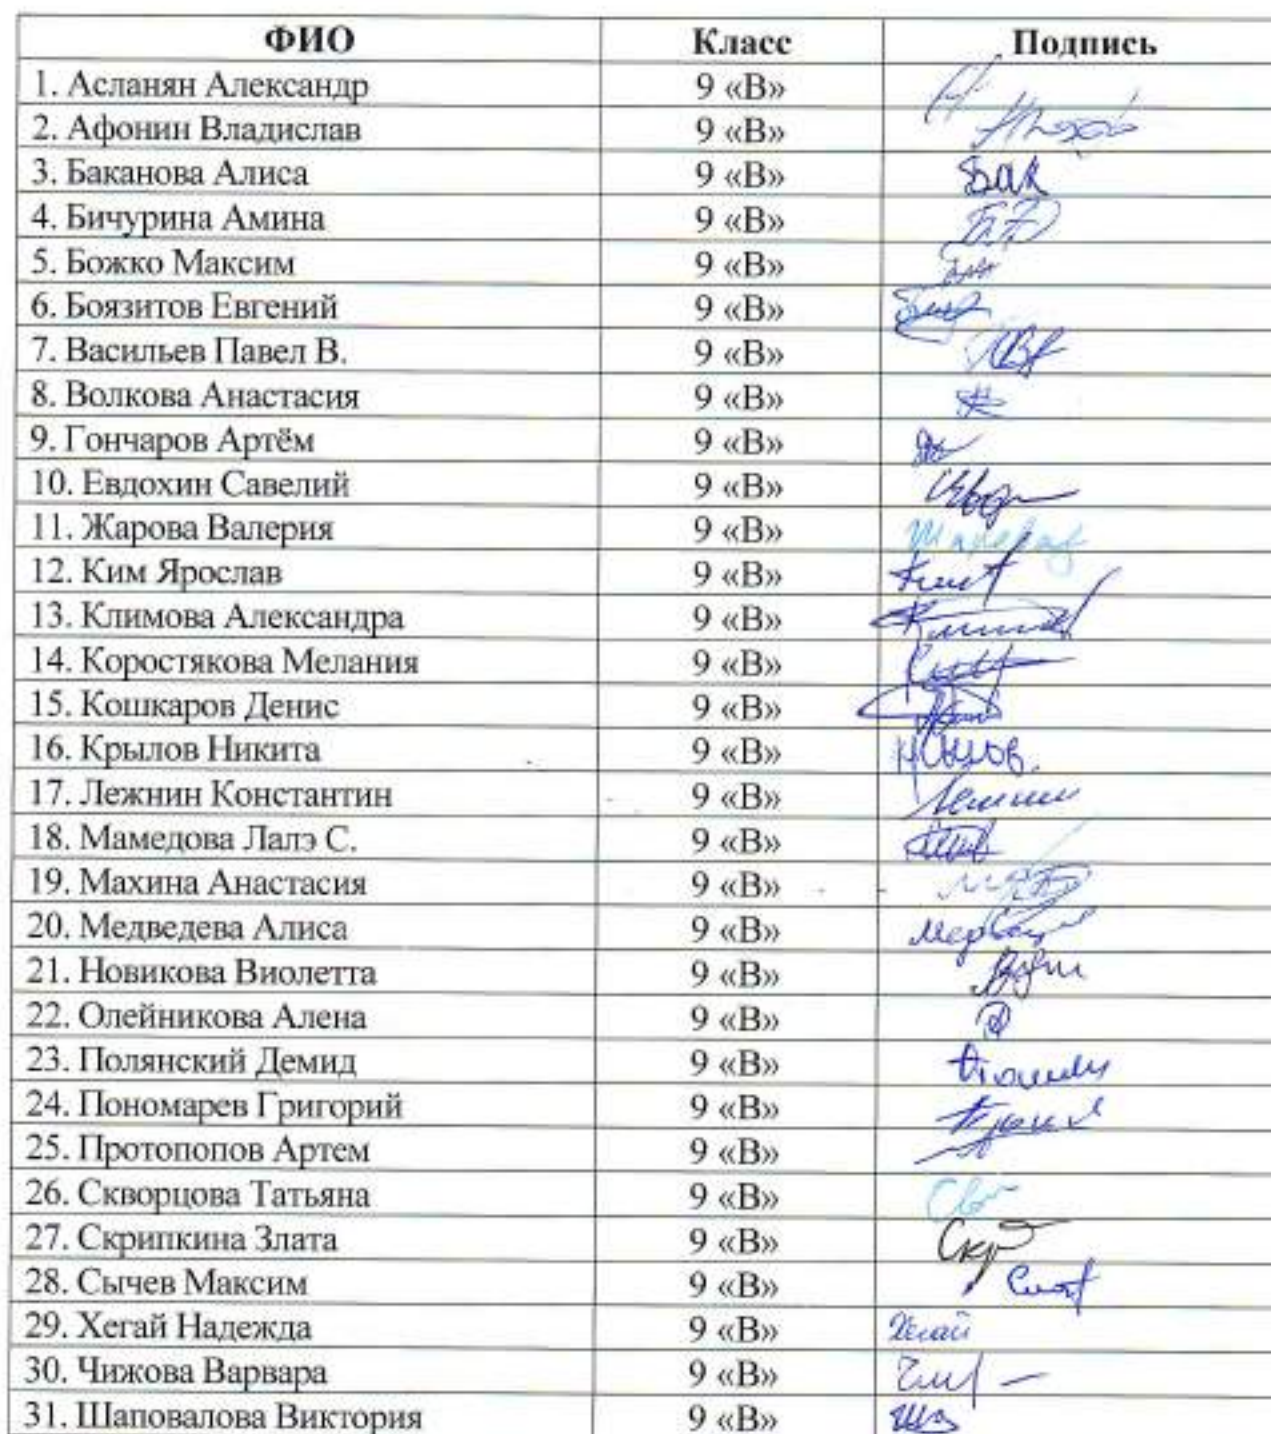 ФИО Класс Подпись
1. Асланян Александр 9 «В»
2. Афонин Владислав 9 «В»
3. Баканова Алиса 9 «В» Бак
4. Бичурина Амина 9 «В»
5. Божко Максим 9 «В»
6. Боязитов Евгений 9 «В»
7. Васильев Павел В. 9 «В»
8. Волкова Анастасия 9 «В»
9. Гончаров Артём 9 «В»
10. Евдохин Савелий 9 «В»
11. Жарова Валерия 9 «В»
12. Ким Ярослав 9 «В»
13. Климова Александра 9 «В»
14. Коростякова Мелания 9 «В»
15. Кошкаров Денис 9 «В»
16. Крылов Никита 9 «В»
17. Лежнин Константин 9 «В»
18. Мамедова Лалэ С. 9 «В»
19. Махина Анастасия 9 «В»
20. Медведева Алиса 9 «В»
21. Новикова Виолетта 9 «В»
22. Олейникова Алена 9 «В»
23. Полянский Демид 9 «В»
24. Пономарев Григорий 9 «В»
25. Протопопов Артем 9 «В»
26. Скворцова Татьяна 9 «В»
27. Скрипкина Злата 9 «В» Скр
28. Сычев Максим 9 «В»
29. Хегай Надежда 9 «В» Хегай
30. Чижова Варвара 9 «В»
31. Шаповалова Виктория 9 «В»